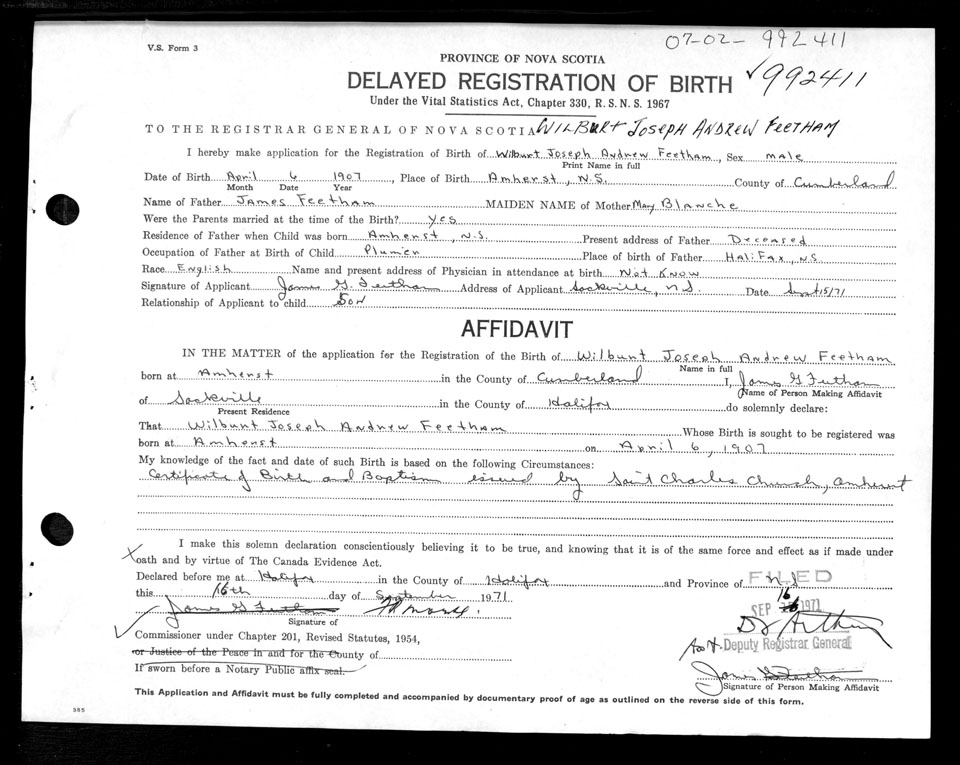 07-02- 992411
V.S. Form 3
PROVINCE OF NOVA SCOTIA
DELAYED REGISTRATION OF BIRTH ✓992411
Under the Vital Statistics Act, Chapter 330, R.S.N.S. 1967
TO THE REGISTRAR GENERAL OF NOVA SCOTIA WILBURT JOSEPH ANDREW FEETHAM
I hereby make application for the Registration of Birth of Wilburt Joseph Andrew Feetham, Sex male
Print Name in full
Date of Birth April 6 1907, Place of Birth Amherst, N.S. County of Cumberland
Month Date Year
Name of Father James Feetham MAIDEN NAME of Mother Mary Blanche
Were the Parents married at the time of the Birth? Yes
Residence of Father when Child was born Amherst, N.S. Present address of Father Deceased
Occupation of Father at Birth of Child Place of birth of Father Halifax, N.S.
Race English Name and present address of Physician in attendance at birth Not Know
Signature of Applicant James G. Feetham Address of Applicant Sackville, N.S. Date Sept 15/71
Relationship of Applicant to child Son
AFFIDAVIT
IN THE MATTER of the application for the Registration of the Birth of Wilburt Joseph Andrew Feetham
Name in full
born at Amherst in the County of Cumberland I, James G Feetham
Name of Person Making Affidavit
of Sackville in the County of Halifax do solemnly declare:
Present Residence
That Wilburt Joseph Andrew Feetham Whose Birth is sought to be registered was
born at Amherst on April 6, 1907
My knowledge of the fact and date of such Birth is based on the following Circumstances:
Certificate of Birth and Baptism issued by Saint Charles Church, Amherst
I make this solemn declaration conscientiously believing it to be true, and knowing that it is of the same force and effect as if made under
oath and by virtue of The Canada Evidence Act.
Declared before me at Halifax in the County of Halifax and Province of N S
FILED
this 16th day of September 1971
16
SEP 1971
James G Feetham
Signature of
Commissioner under Chapter 201, Revised Statutes, 1954,
Deputy Registrar General
or Justice of the Peace in and for the County of
James G Feetham
If sworn before a Notary Public affix seal.
Signature of Person Making Affidavit
This Application and Affidavit must be fully completed and accompanied by documentary proof of age as outlined on the reverse side of this form.
385